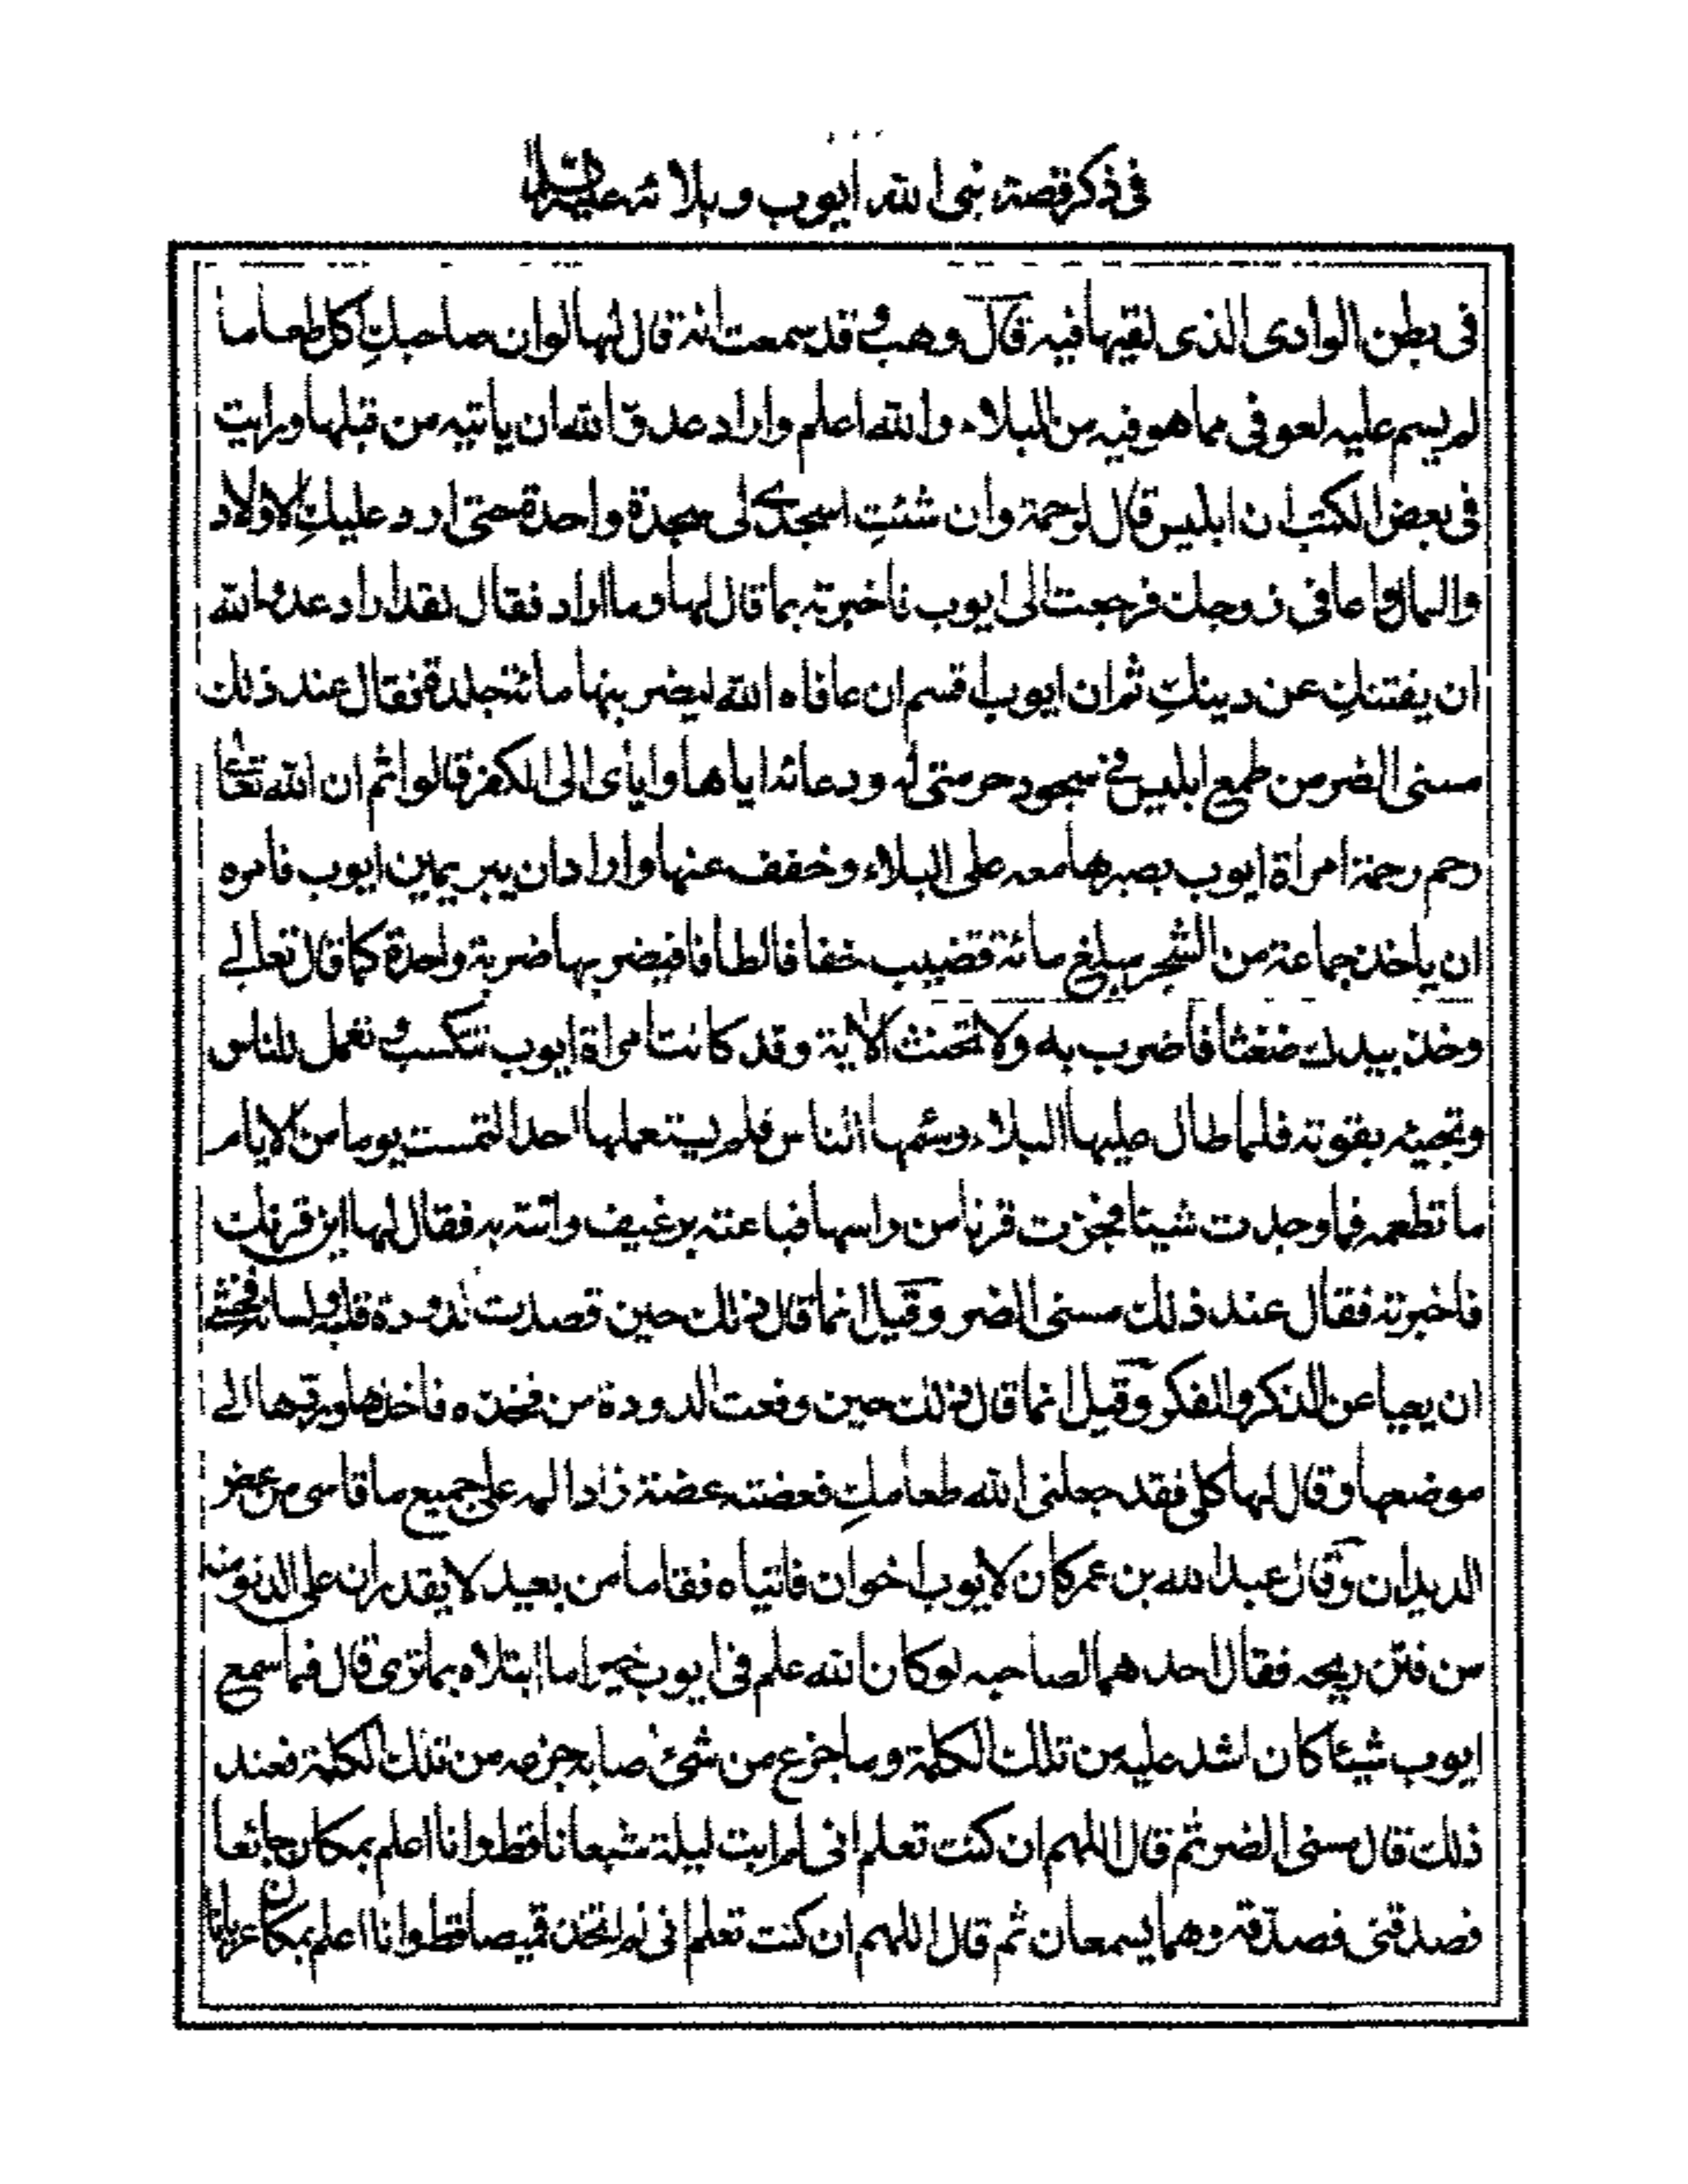 فى ذكر قصة نبى الله ايوب وبلائه عليه السلام
فى بطن الوادى الذى لقيها فيه قال وهب وقد سمعت انه قال لها لو ان صاحبكِ اكل طعاما
لم يسم عليه لعوفى مما هو فيه من البلاء والله اعلم واراد عدوّ الله ان ياتيه من قبلها ورايت
فى بعض الكتب ان ابليس قال لرحمة وان شئتِ اسجدى لى سجدة واحدة حتى ارد عليكِ الاولاد
والمال واعافى زوجك فرجعت الى ايوب فاخبرته بما قال لها وما اراد فقال لقد اراد عدو الله
ان يفتنكِ عن دينكِ ثم ان ايوب اقسم ان عافاه الله ليضربنها مائة جلدة فقال عند ذلك
مسنى الضر من طمع ابليس فى سجود حرمتى له ودعائه اياها واياى الى الكفر قالوا ثم ان الله تعالى
رحم رحمة امراة ايوب بصبرها معه على البلاء وخفف عنها واراد ان يبر يمين ايوب فامره
ان ياخذ جماعة من الشجر مبلغ مائة قضيب خفافا لطافا فيضربها ضربة واحدة كما قال تعالى
وخذ بيدك ضغثا فاضرب به ولا تحنث الآية وقد كانت امراة ايوب تتكسب وتعمل للناس
وتجيئه بقوته فلما طال عليها البلاء وسئمها الناس فلم يستعملها احد التمست يوما من الايام
ما تطعمه فما وجدت شيئا فجزت قرنا من راسها فباعته برغيف واتته به فقال لها اين قرنك
فاخبرته فقال عند ذلك مسنى الضر وقيل انما قال ذلك حين قصدت الدودة قلبه ولسانه فخشى
ان يعيا عن الذكر والفكر وقيل انما قال ذلك حين وقعت الدودة من فخذه فاخذها وردها الى
موضعها وقال لها كلى فقد جعلنى الله طعامكِ فعضته عضة زاد المه على جميع ما قاسى من عض
الديدان وقال عبد الله بن عمر كان لايوب اخوان فاتياه فقاما من بعيد لا يقدران على الدنو منه
من فتن ريحه فقال احدهما لصاحبه لو كان الله علم فى ايوب خيرا ما ابتلاه بما ترى قال فما سمع
ايوب شيئا كان اشد عليه من تلك الكلمة وما جزع من شئ اصابه جزعه من تلك الكلمة فعند
ذلك قال مسنى الضر ثم قال اللهم ان كنت تعلم انى لم ابت ليلة شبعانا قط وانا اعلم بمكان جائعا
فصدقنى فصدّقه وهما يسمعان ثم قال اللهم ان كنت تعلم انى لم اتخذ قميصا قط وانا اعلم بمكان عريانا